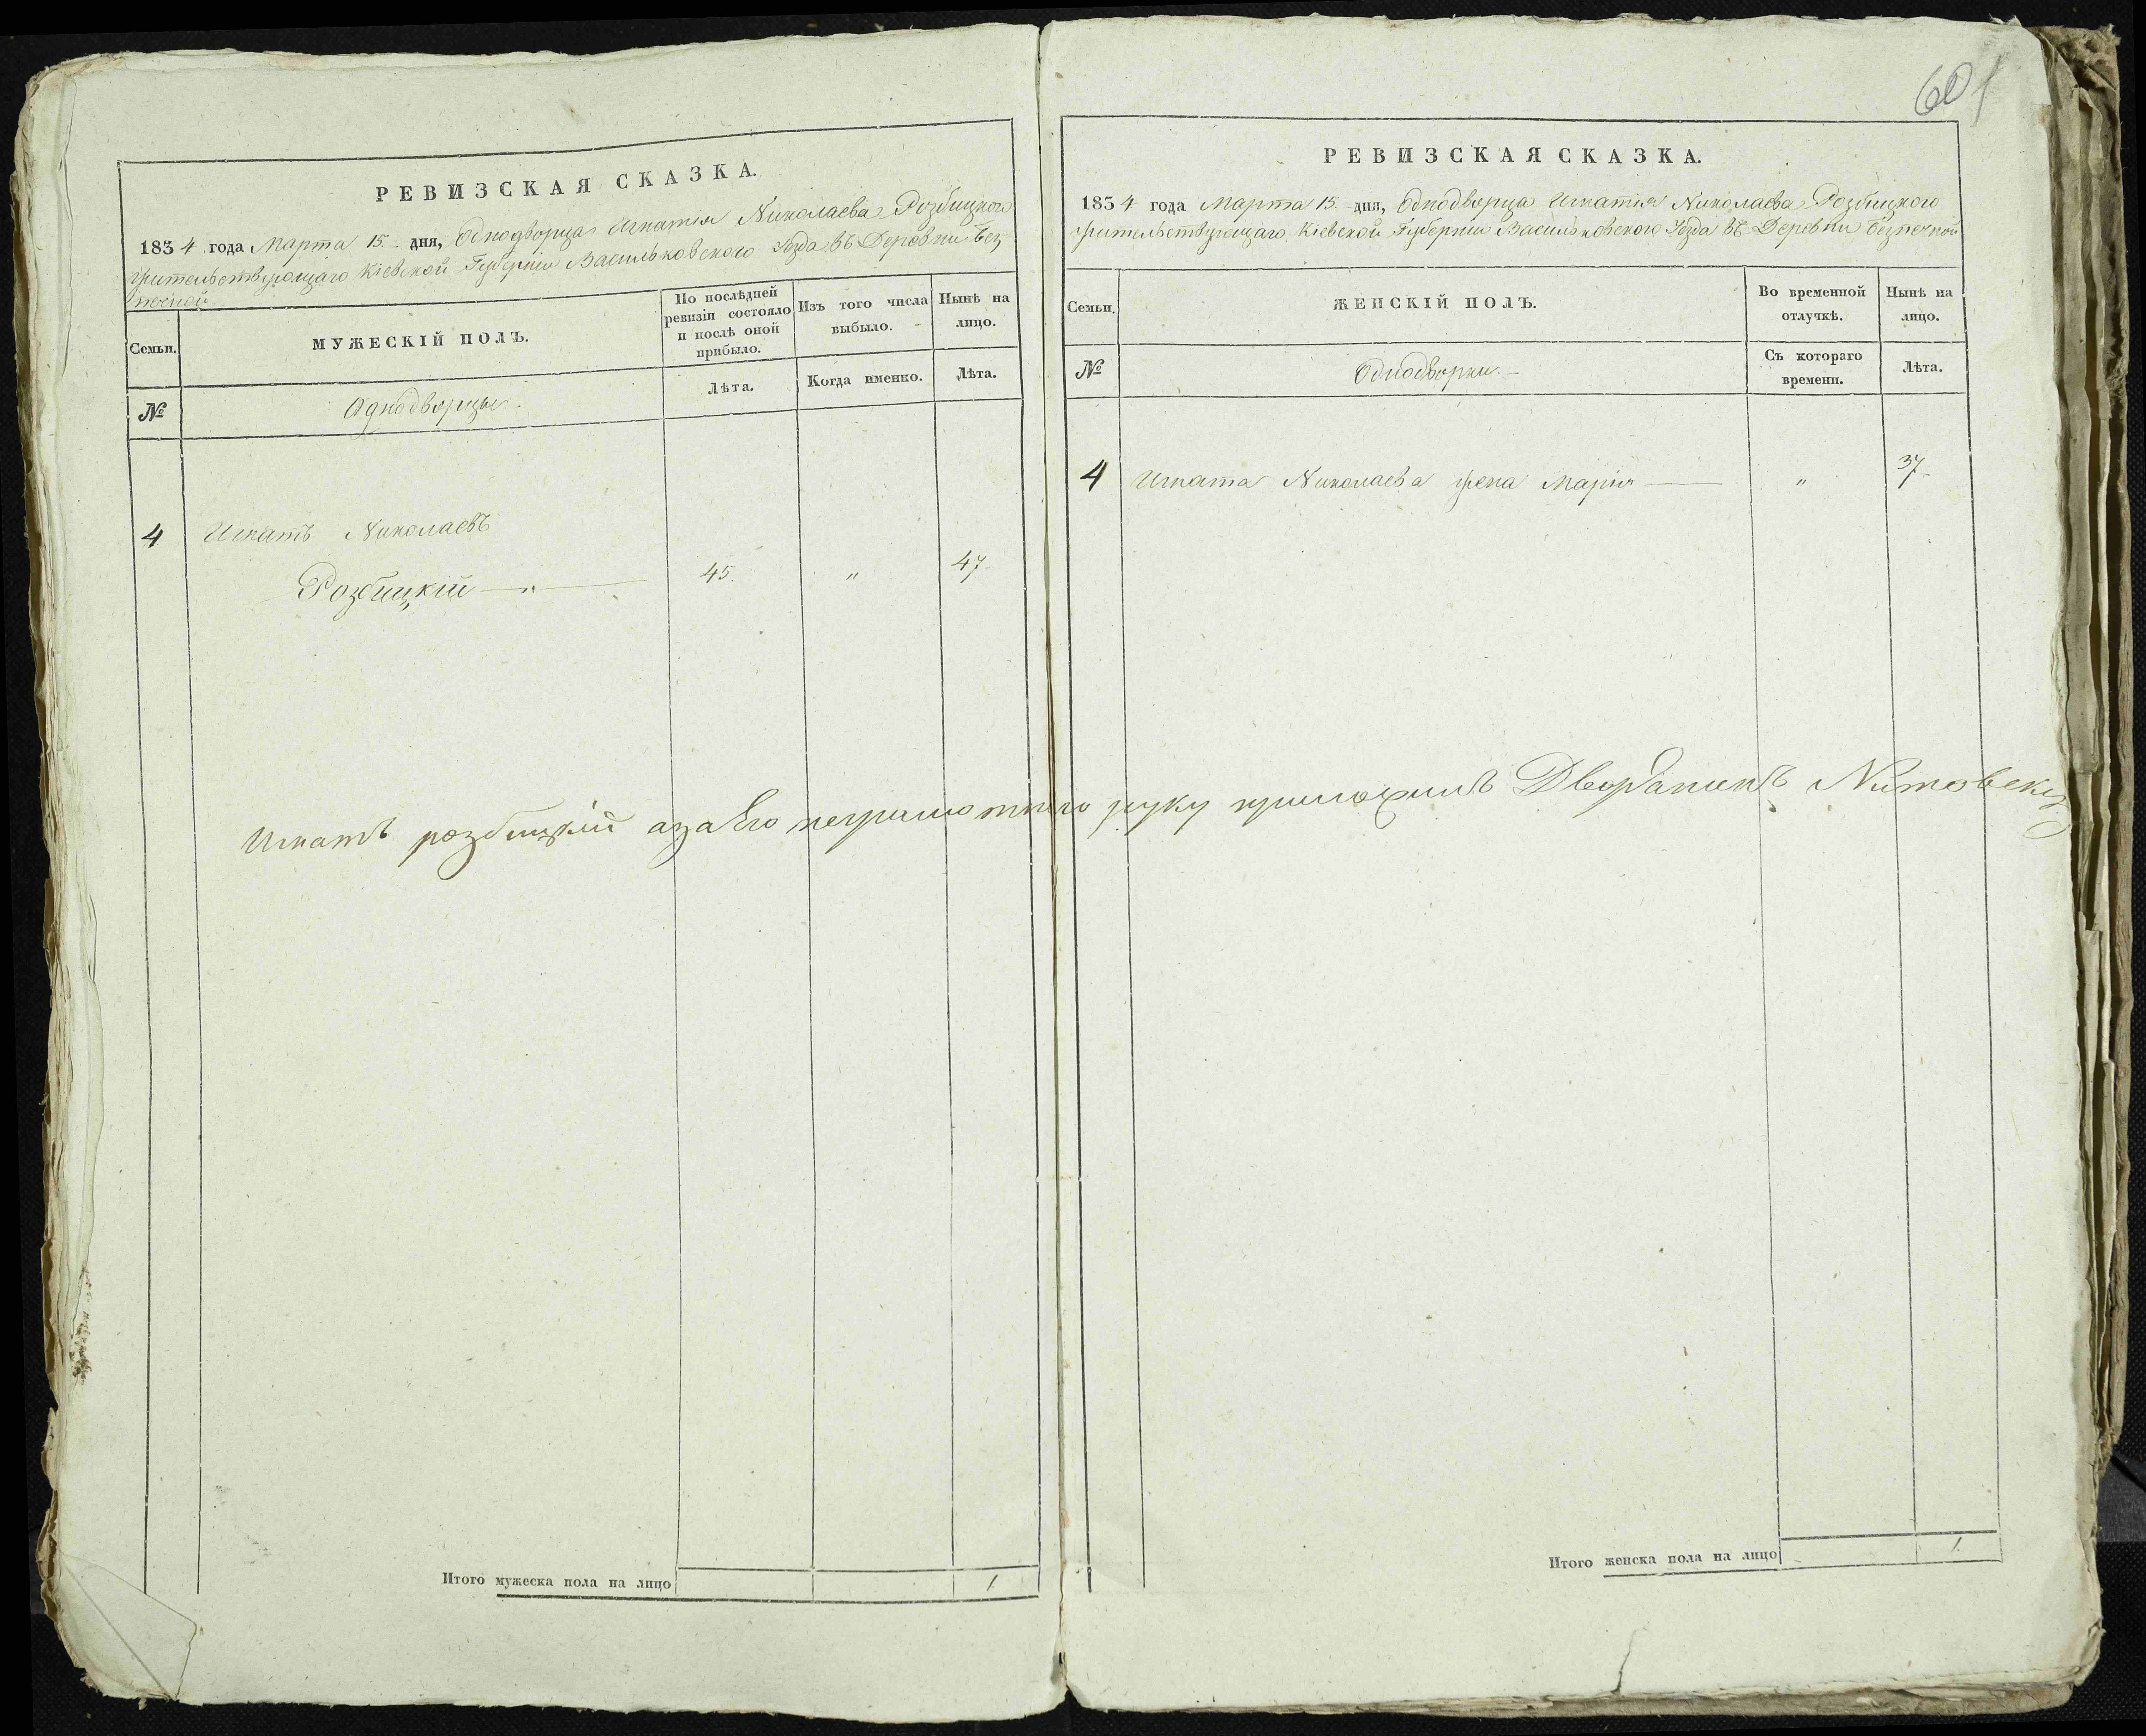 601
РЕВИЗСКАЯ СКАЗКА.
1834 года Марта 15. дня, Однодворца Игнатія Николаева Розбицкого
жительствующаго Кіевской Губерніи Васильковского Уезда въ Деревни Без
печной
Семьи.
МУЖЕСКІЙ ПОЛЪ.
По послѣдней
ревизіи состояло
и послѣ оной
прибыло.
Изъ того числа
выбыло.
Нынѣ на
лицо.
№
Однодворцы.
Лѣта.
Когда именно.
Лѣта.
4
Игнатъ Николаевъ
Розбицкій
45.
"
47.
Итого мужеска пола на лицо
1
РЕВИЗСКАЯ СКАЗКА.
1834 года Марта 15. дня, Однодворца Игнатія Николаева Розбицкого
жительствующаго Кіевской Губерніи Васильковского Уезда въ Деревни Безпечной
Семьи.
ЖЕНСКІЙ ПОЛЪ.
Во временной
отлучкѣ.
Нынѣ на
лицо.
№
Однодворки.
Съ котораго
времени.
Лѣта.
4
Игната Николаева жена Марія
"
37.
Игнатъ розбицкій азаЕго неграмотного руку приложилъ Дворанинъ
Итого женска пола на лицо
1.